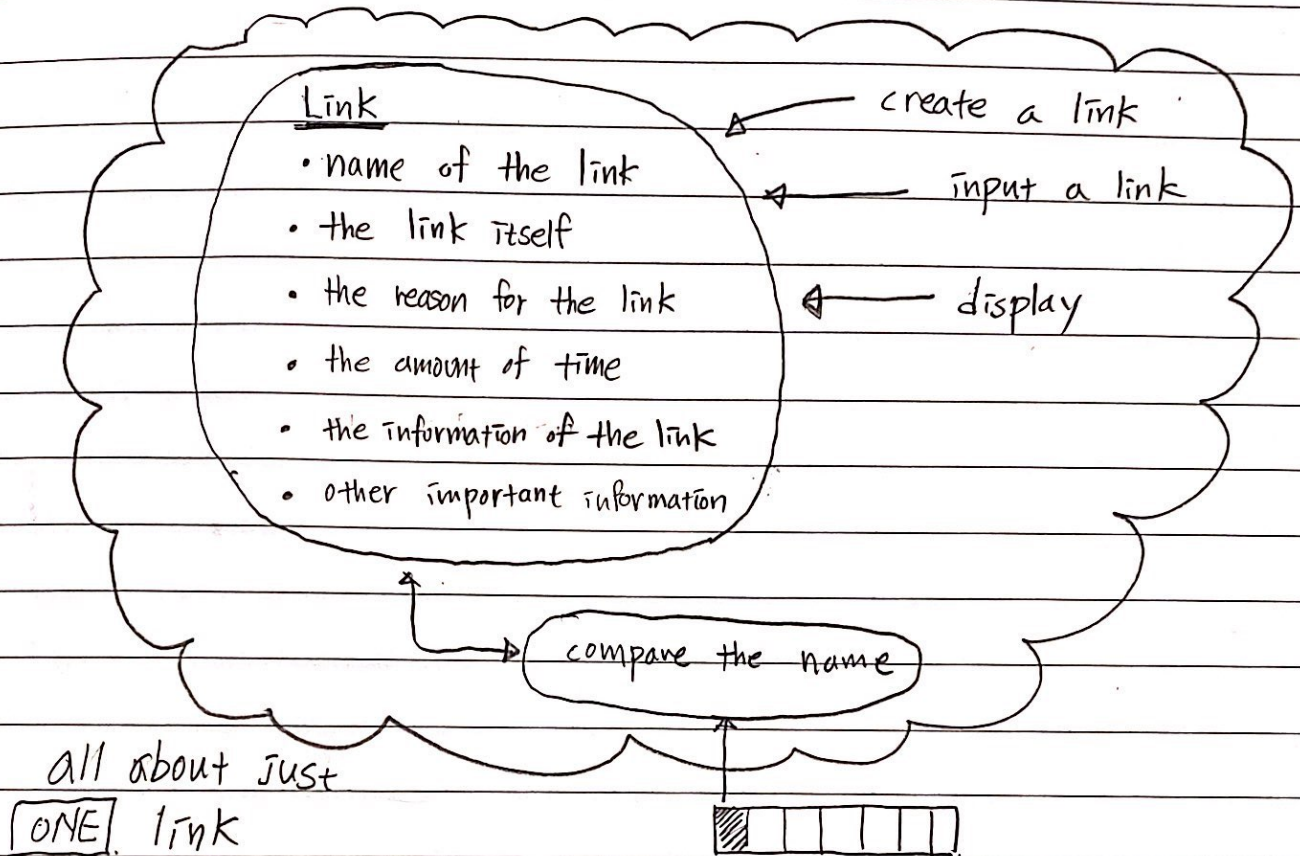 Link
• name of the link
• the link itself
• the reason for the link
• the amount of time
• the information of the link
• other important information
create a link
input a link
display
compare the name
all about just
ONE link